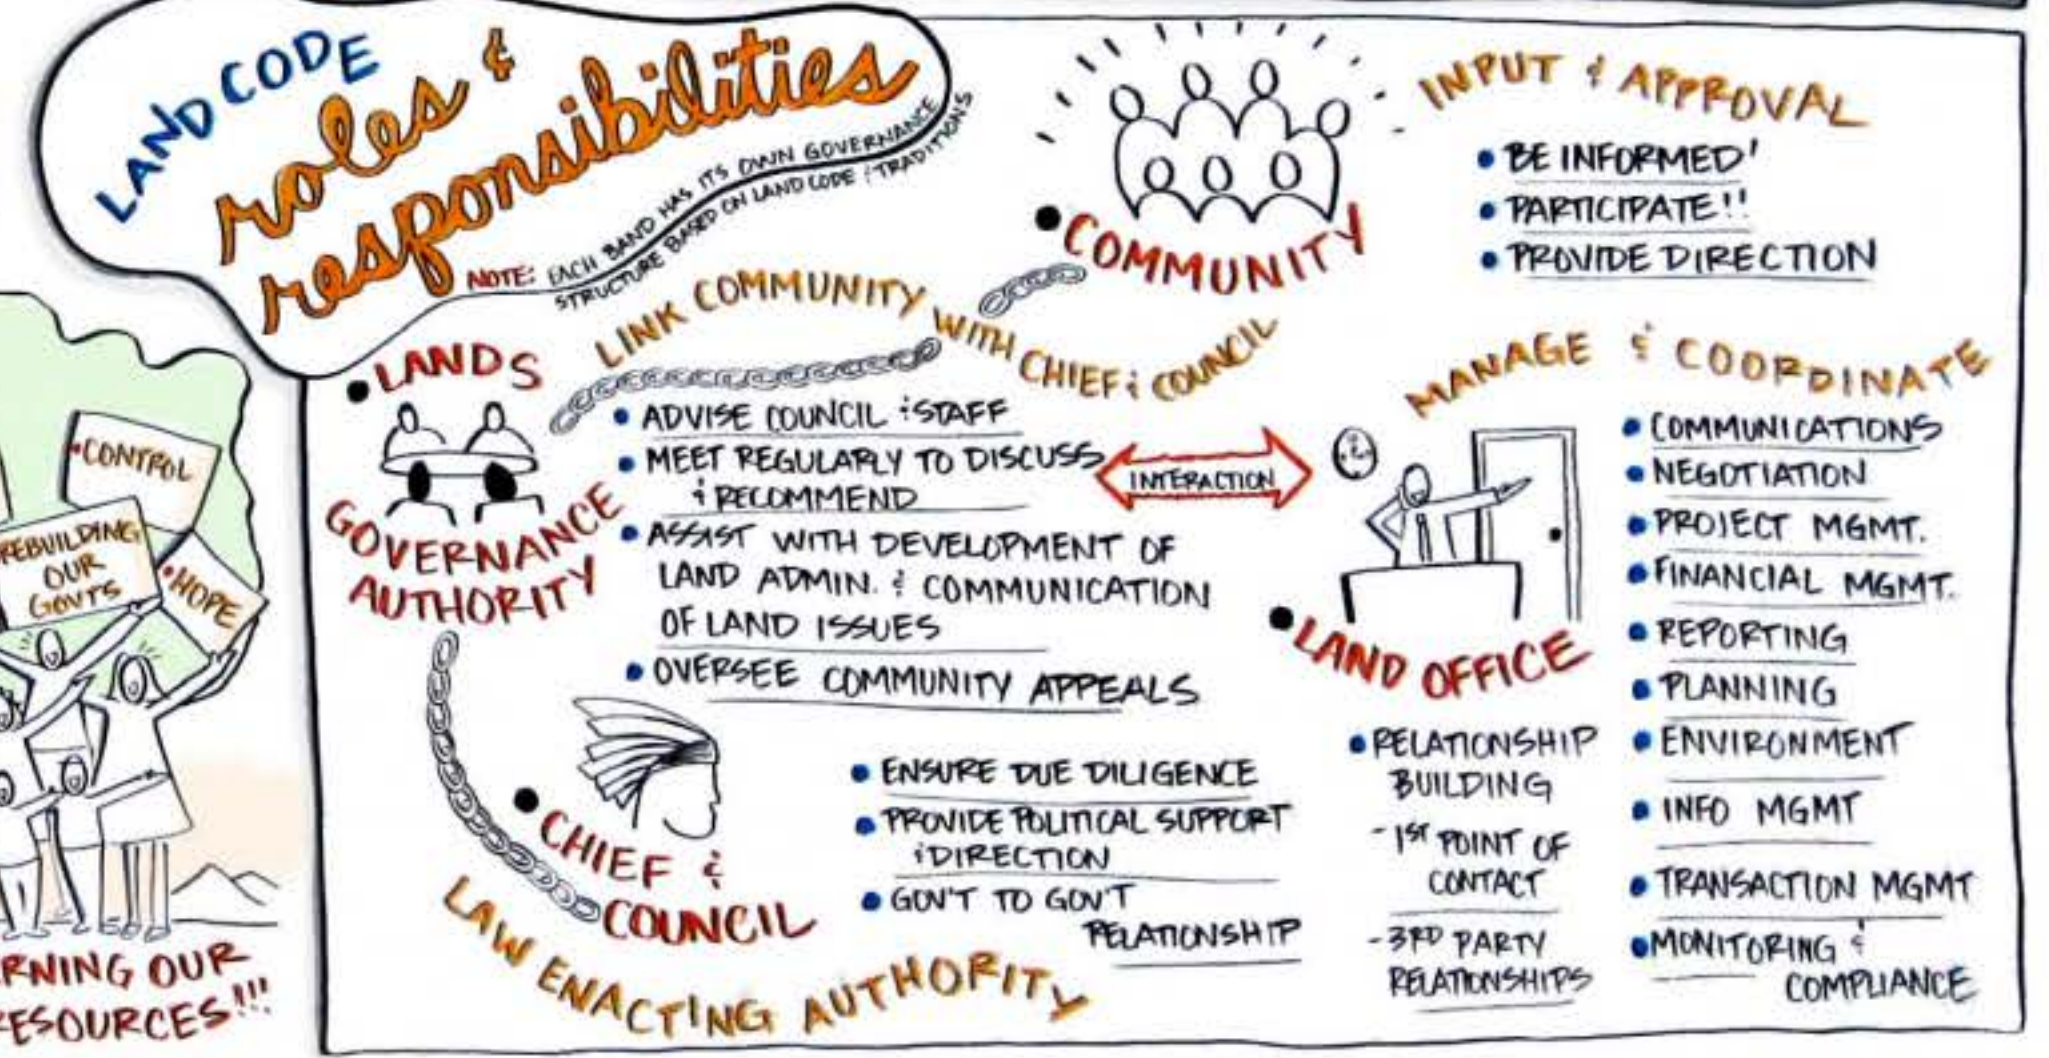 LAND CODE
roles &
responsibilities
NOTE: EACH BAND HAS ITS OWN GOVERNANCE
STRUCTURE BASED ON LAND CODE & TRADITIONS
• COMMUNITY
INPUT & APPROVAL
• BE INFORMED!
• PARTICIPATE!!
• PROVIDE DIRECTION
LINK COMMUNITY WITH CHIEF & COUNCIL
• LANDS
GOVERNANCE
AUTHORITY
• ADVISE COUNCIL & STAFF
• MEET REGULARLY TO DISCUSS
& RECOMMEND
• ASSIST WITH DEVELOPMENT OF
LAND ADMIN. & COMMUNICATION
OF LAND ISSUES
• OVERSEE COMMUNITY APPEALS
INTERACTION
MANAGE & COORDINATE
• LAND OFFICE
• COMMUNICATIONS
• NEGOTIATION
• PROJECT MGMT.
• FINANCIAL MGMT.
• REPORTING
• PLANNING
• ENVIRONMENT
• INFO MGMT
• TRANSACTION MGMT
• MONITORING &
COMPLIANCE
• RELATIONSHIP
BUILDING
- 1ST POINT OF
CONTACT
- 3RD PARTY
RELATIONSHIPS
• CHIEF &
COUNCIL
LAW ENACTING AUTHORITY
• ENSURE DUE DILIGENCE
• PROVIDE POLITICAL SUPPORT
& DIRECTION
• GOV'T TO GOV'T
RELATIONSHIP
• CONTROL
REBUILDING
OUR
GOVTS
• HOPE
RNING OUR
RESOURCES!!!